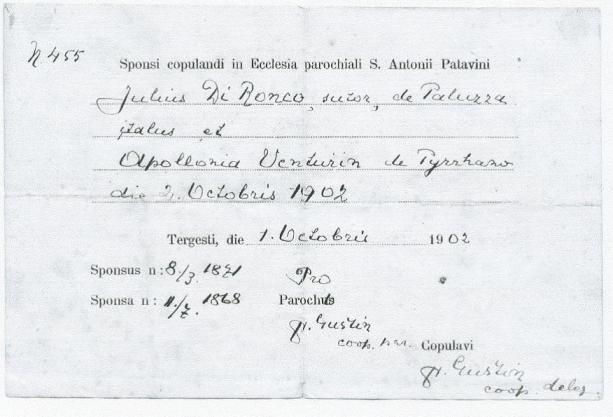 N 455
Sponsi copulandi in Ecclesia parochiali S. Antonii Patavini
Julius Di Ronco, sutor, de Paluzza
italus et
Apollonia Venturin de Pyrrhano
die 2. Octobris 1902
Tergesti, die 1. Octobris 1902
Sponsus n: 8./3. 1871 Pro
Sponsa n: 11./7. 1868 Parochus
Gustin
coop. Copulavi
Gustin
coop. deleg.